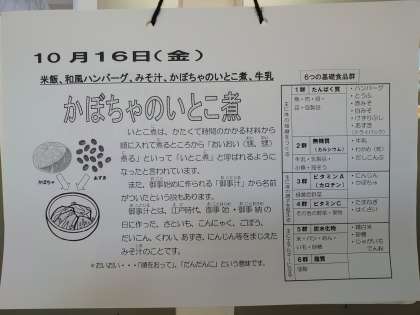 10月16日(金)
米飯、和風ハンバーグ、みそ汁、かぼちゃのいとこ煮、牛乳
かぼちゃのいとこ煮
かぼちゃ
あずき
いとこ煮は、かたくて時間のかかる材料から
順に入れて煮るところから「おいおい（甥、甥）
煮る」といって「いとこ煮」と呼ばれるように
なったと言われています。
また、御事始めに作られる「御事汁」から名前
がついたという説もあります。
御事汁とは、江戸時代、御事始・御事納の
日に作った、さといも、こんにゃく、ごぼう、
だいこん、くわい、あずき、にんじん等をまじえたみ
そ汁のことです。
*おいおい・・・「順をおって」、「だんだんに」という意味です。
6つの基礎食品群
1群 たんぱく質
・ハンバーグ
・とうふ
・赤みそ
・白みそ
・けずりぶし
・あずき
(ドライパック)
2群 無機質
(カルシウム)
・牛乳
・わかめ(乾)
・だしこんぶ
3群 ビタミンA
(カロチン)
緑黄色野菜
・にんじん
・かぼちゃ
4群 ビタミンC
その他の野菜・果物
・たまねぎ
・はくさい
5群 炭水化物
・精白米
・砂糖
・じゃがいも
でんぷん
6群 脂質
油脂